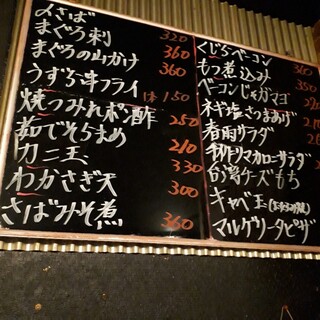 〆さば 320
まぐろ刺 360
まぐろの山かけ 360
うずら串フライ 1本 150
焼つみれポン酢 250
茹でそらまめ 210
カニ玉 330
わかさぎ天 300
さばみそ煮 360
くじらベーコン
もつ煮込み 360
ベーコンじゃがマヨ
ネギ塩さつまあげ
春雨サラダ
マカロニサラダ
台湾チーズもち
キャベ玉
マルゲリータピザ